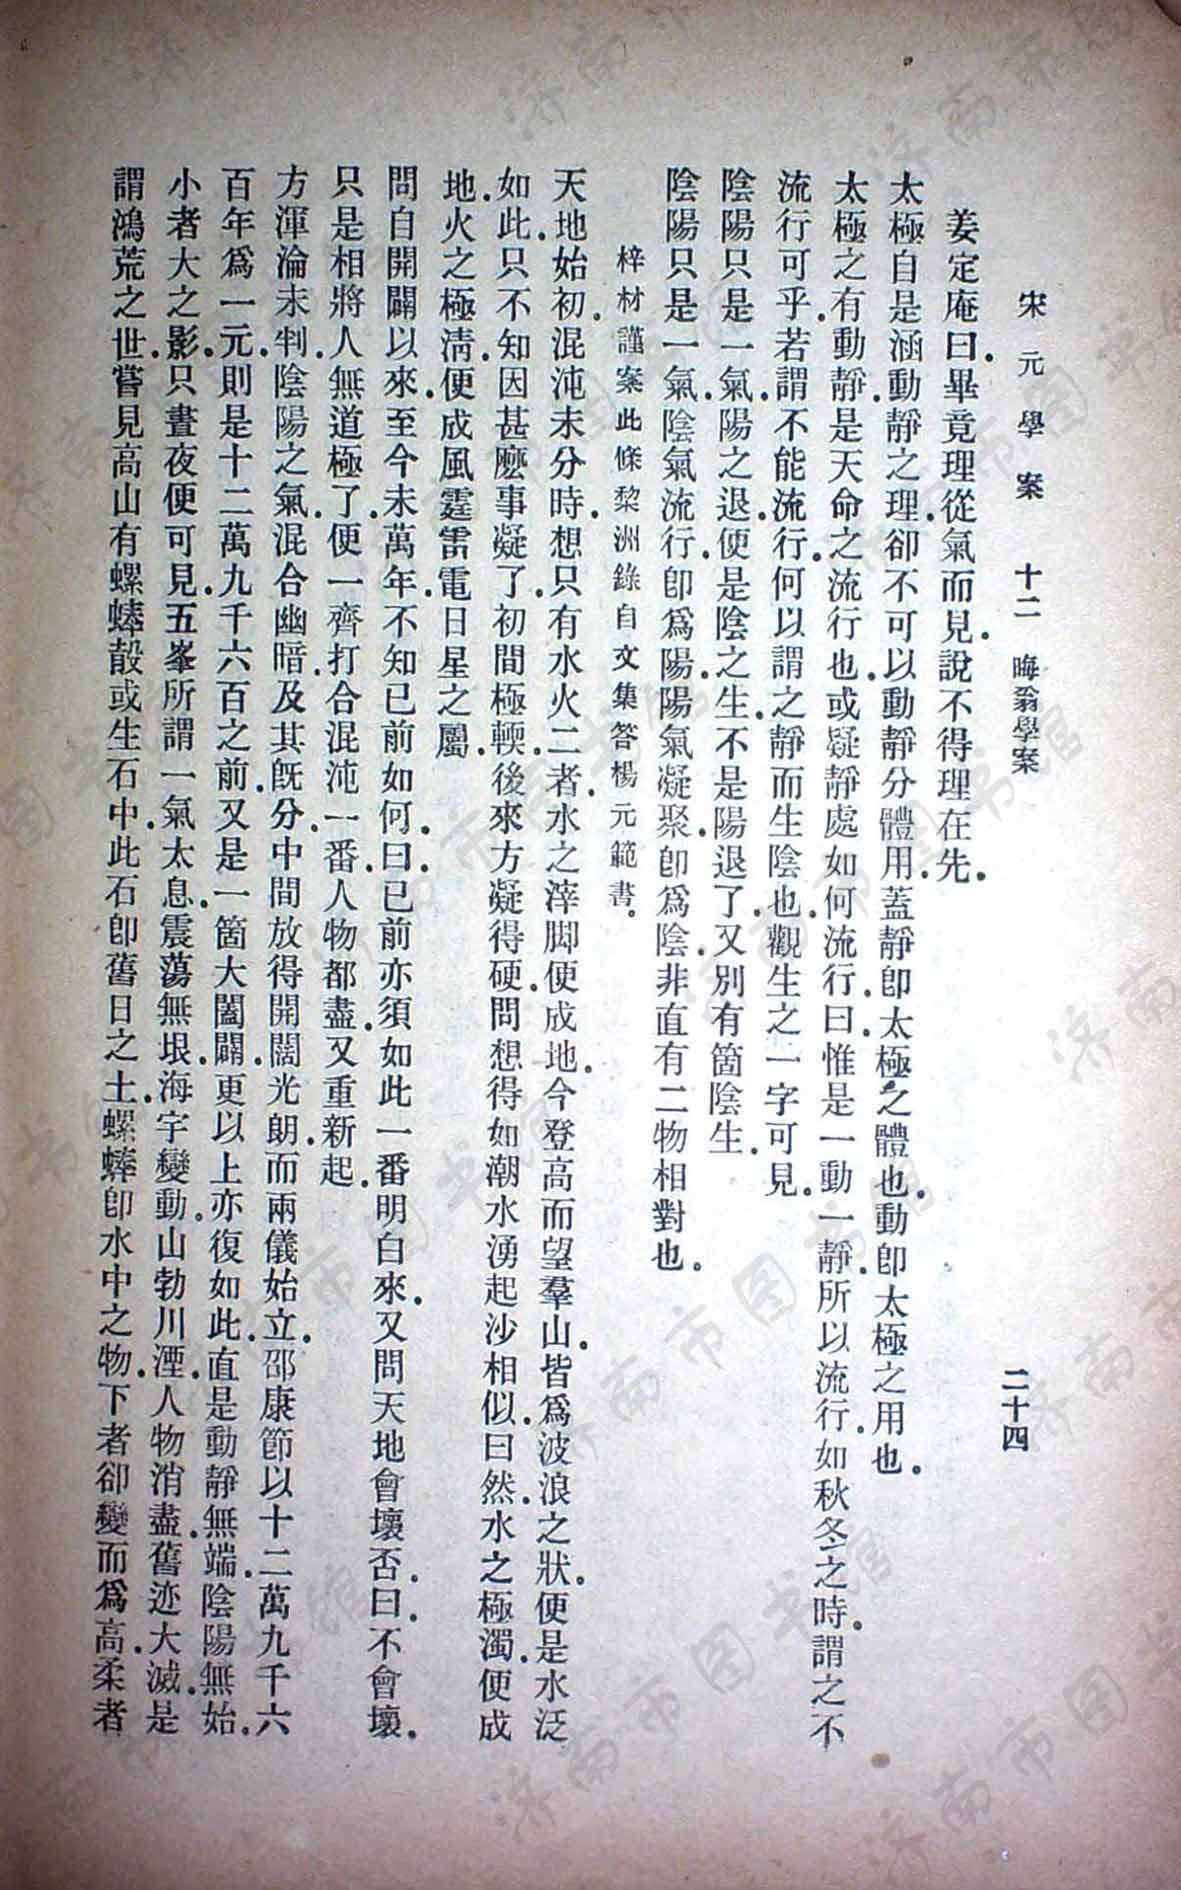 宋元學案 十二 晦翁學案 二十四
姜定庵曰畢竟理從氣而見說不得理在先
太極自是涵動靜之理卻不可以動靜分體用蓋靜卽太極之體也動卽太極之用也
太極之有動靜是天命之流行也或疑靜處如何流行曰惟是一動一靜所以流行如秋冬之時謂之不
流行可乎若謂不能流行何以謂之靜而生陰也觀生之一字可見
陰陽只是一氣陽之退便是陰之生不是陽退了又別有箇陰生
陰陽只是一氣陰氣流行卽爲陽陽氣凝聚卽爲陰非直有二物相對也
梓材謹案此條棃洲錄自文集答楊元範書
天地始初混沌未分時想只有水火二者水之滓脚便成地今登高而望羣山皆爲波浪之狀便是水泛
如此只不知因甚麼事凝了初間極輭後來方凝得硬問想得如潮水湧起沙相似曰然水之極濁便成
地火之極淸便成風霆雷電日星之屬
問自開闢以來至今未萬年不知已前如何曰已前亦須如此一番明白來又問天地會壞否曰不會壞
只是相將人無道極了便一齊打合混沌一番人物都盡又重新起
方渾淪未判陰陽之氣混合幽暗及其旣分中間放得開闊光朗而兩儀始立邵康節以十二萬九千六
百年爲一元則是十二萬九千六百之前又是一箇大闔闢更以上亦復如此直是動靜無端陰陽無始
小者大之影只晝夜便可見五峯所謂一氣太息震蕩無垠海宇變動山勃川湮人物消盡舊迹大滅是
謂鴻荒之世嘗見高山有螺蚌殼或生石中此石卽舊日之土螺蚌卽水中之物下者卻變而爲高柔者
济南市图书馆